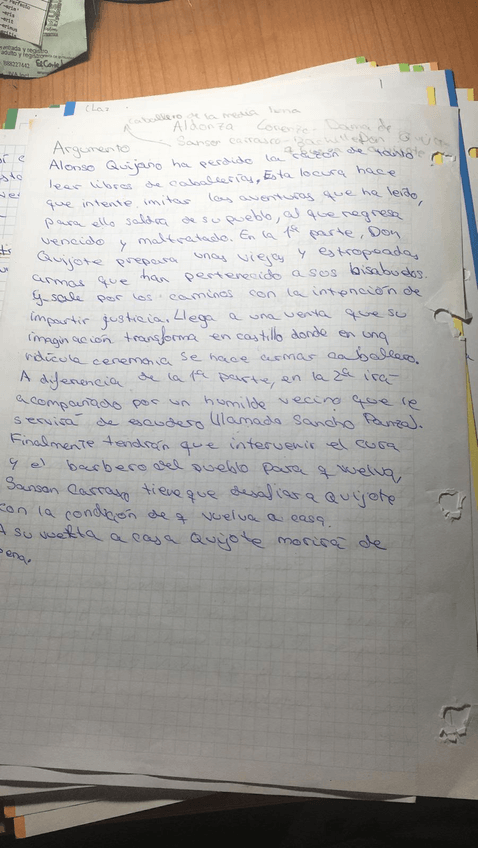 (Las
caballero de la media luna
Aldonza Lorenzo. Dama de
Sanson carrasco
Argumento
Alonso Quijano ha perdido la razón de tanto
leer libros de caballerías. Esta locura hace
que intente imitar las aventuras que ha leido,
para ello saldra de su pueblo, al que regresa
vencido y maltratado. En la 1ª parte, Don
Quijote prepara unas viejas y estropeadas
armas que han pertenecido a sus bisabuelos.
y sale por los caminos con la intención de
impartir justicia. Llega a una venta que su
imaginación transforma en castillo donde en una
ridícula ceremonia se hace armar caballero.
A diferencia de la 1ª parte, en la 2ª irá
acompañado por un humilde vecino que le
servirá de escudero (llamado Sancho Panza).
Finalmente tendrán que intervenir el cura
y el barbero del pueblo para q vuelva,
Sanson Carrasco tiene que desafiar a Quijote
con la condición de q vuelva a casa.
A su vuelta a casa Quijote morirá de
pena.